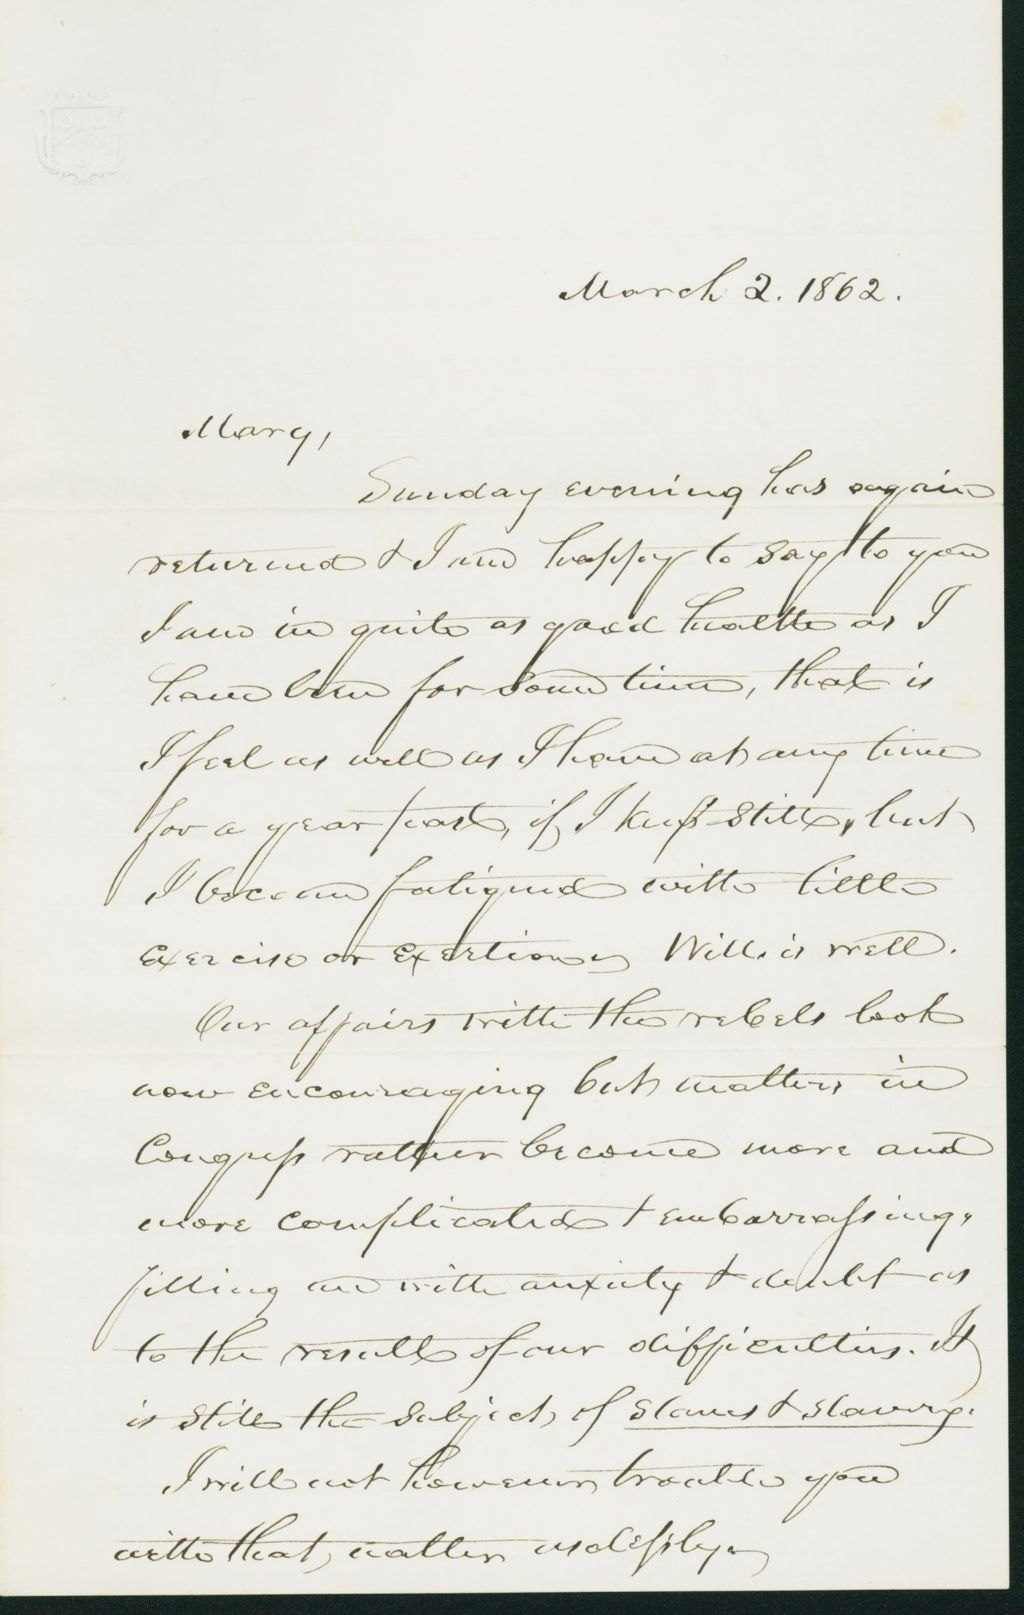 March 2. 1862.
Mary,
Sunday evening has again
returned & I am happy to say to you
I am in quite as good health as I
have been for some time, that is
I feel as well as I have at any time
for a year past, if I keep still, but
I become fatigued with little
exercise or exertion, Will. is well.
Our affairs with the rebels look
now encouraging but matters in
Congress rather become more and
more complicated & embarrassing,
filling me with anxiety & doubt as
to the result of our difficulties. It
is still the subject of slaves & slavery.
I will not however trouble you
with that matter needlessly.